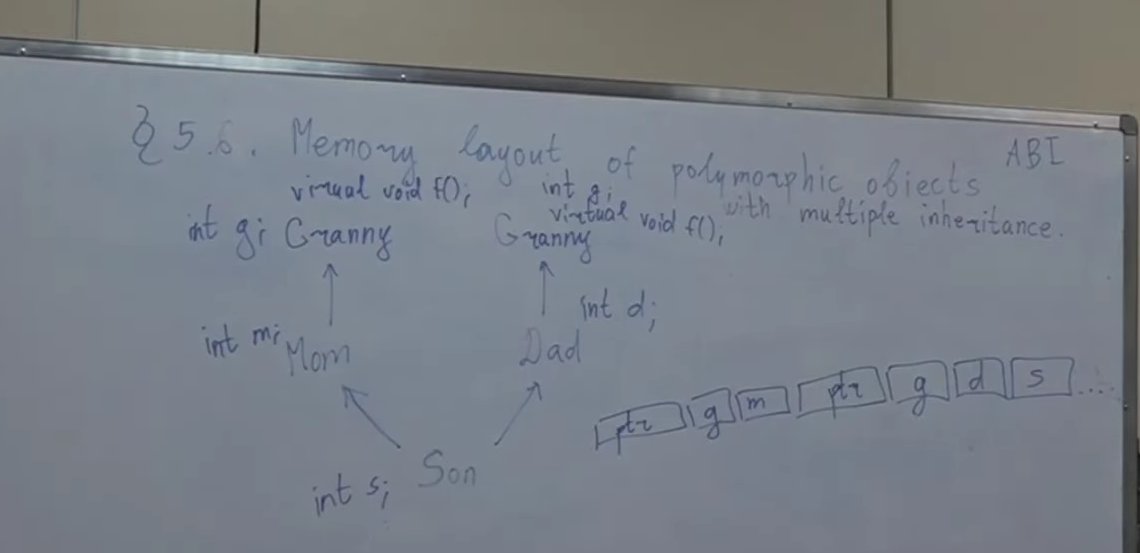 § 5.6. Memory layout of polymorphic objects
with multiple inheritance.
ABI
virtual void f();
int g; Granny
int g;
virtual void f();
Granny
int m; Mom
int d;
Dad
int s; Son
ptr g m ptr g d s ....